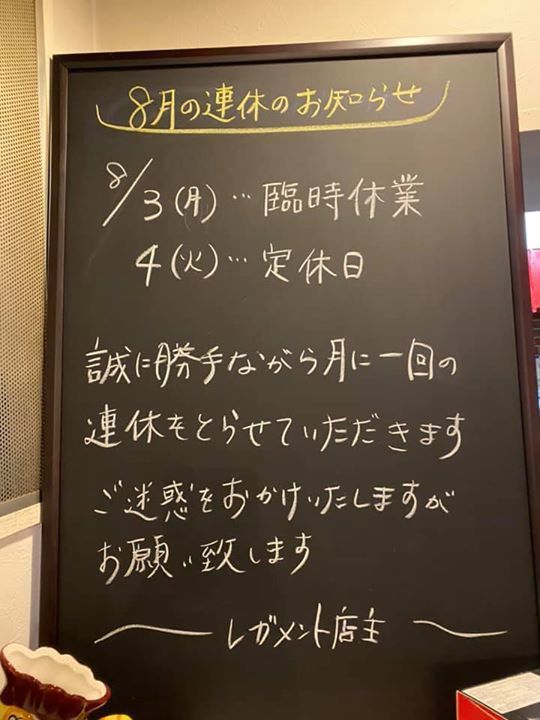 8月の連休のお知らせ
8/3(月)…臨時休業
4(火)…定休日
誠に勝手ながら月に一回の
連休をとらせていただきます
ご迷惑をおかけいたしますが
お願い致します
レガメント店主